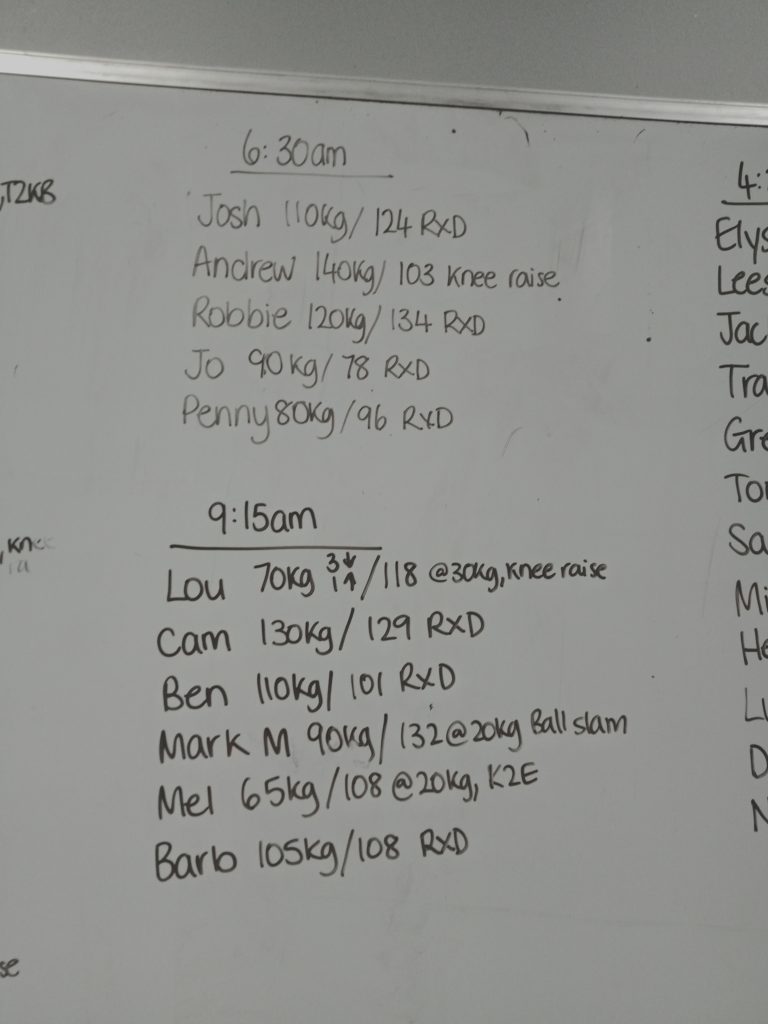 6:30am
Josh 110kg/124 RXD
Andrew 140kg/103 Knee raise
Robbie 120kg/134 RXD
Jo 90kg/78 RXD
Penny 80kg/96 RXD
9:15am
Lou 70kg 3↓ 1↑/118 @30kg, Knee raise
Cam 130kg/129 RXD
Ben 110kg/101 RXD
Mark M 90kg/132@20kg Ball slam
Mel 65kg/108@20kg, K2E
Barb 105kg/108 RXD
,T2KB
4:
Elys
Lees
Jac
Tra
Gre
Sa
Mi
He